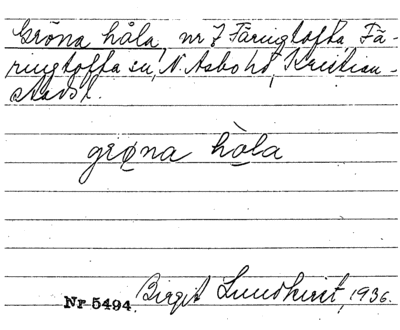 Gröna håla, nr 7 Färingtofta, Fä-
ringtofta sn, N. Åsbo hd, Kristian-
stads l.
grøna hòla
Nr 5494. Birgit Lundkvist, 1936.